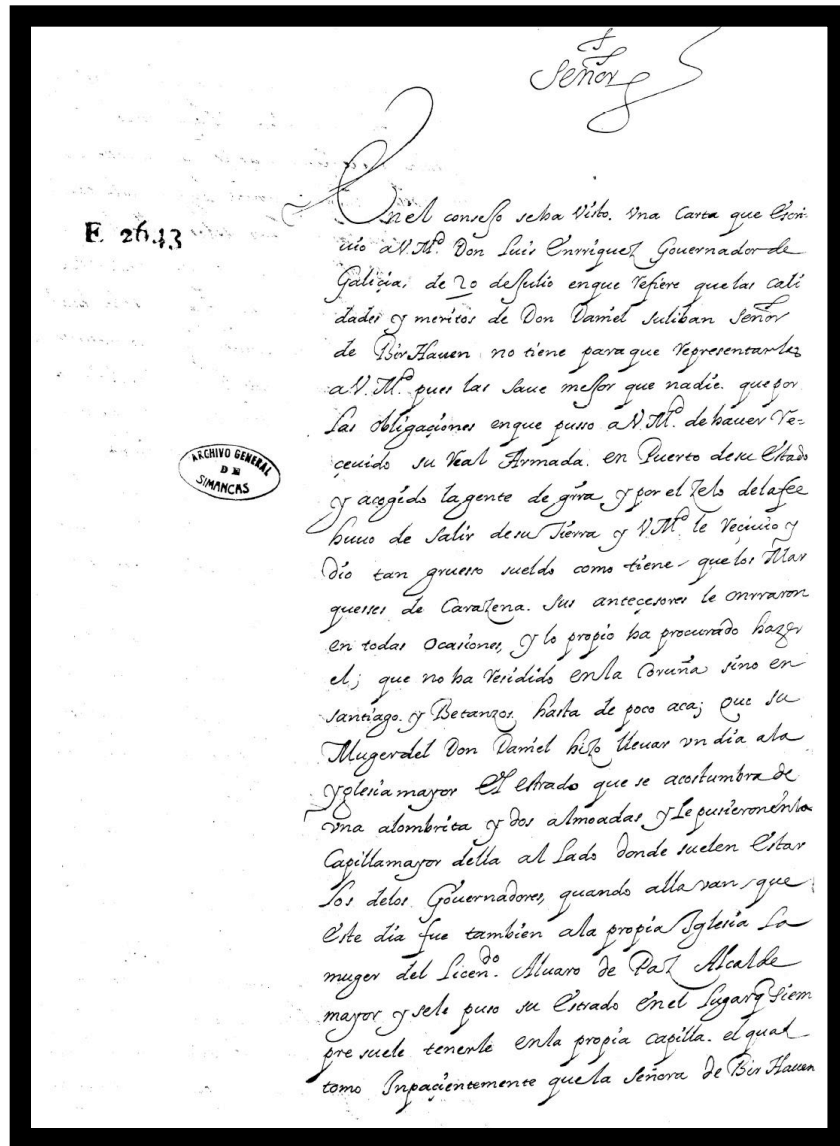 Señor
En el consejo se ha visto. Vna Carta que escri
uio a V. Md. Don Luis Enrriquez Gouernador de
Galiçia, de 20 de Julio en que refiere que las cali
dades y meritos de Don Daniel suliban Señor
de BirHauen no tiene para que representarlas
a V. Md. pues las saue mejor que nadie. que por
las obligaçiones en que puso a V. Md. de hauer re-
çeuido su real Armada. en Puerto de su estado
y acogido la gente de grra y por el zelo de la fee
huuo de salir de su Tierra y V. Md. le reciuio y
dio tan gruesso sueldo como tiene, que los Mar
quesses de Carazena. sus anteçesores le onrraron
en todas ocasiones, y lo propio ha procurado hazer
el; que no ha residido en la Coruña sino en
santiago. y Betanzos. hasta de poco aca; que su
Muger del Don Daniel hizo lleuar vn dia a la
yglesia mayor el estrado que se acostumbra de
vna alombrita y dos almoadas y le pusieron en la
Capilla mayor della al lado donde suelen estar
los de los Gouernadores, quando alla van, que
este dia fue tambien a la propia Iglesia la
muger del Licen.do Aluaro de Paz Alcalde
mayor y se le puso su estrado en el lugar q siem
pre suele tenerle en la propia capilla. el qual
tomo Inpaçientemente que la señora de Bir Hauen
E 2643
ARCHIVO GENERAL
DE
SIMANCAS